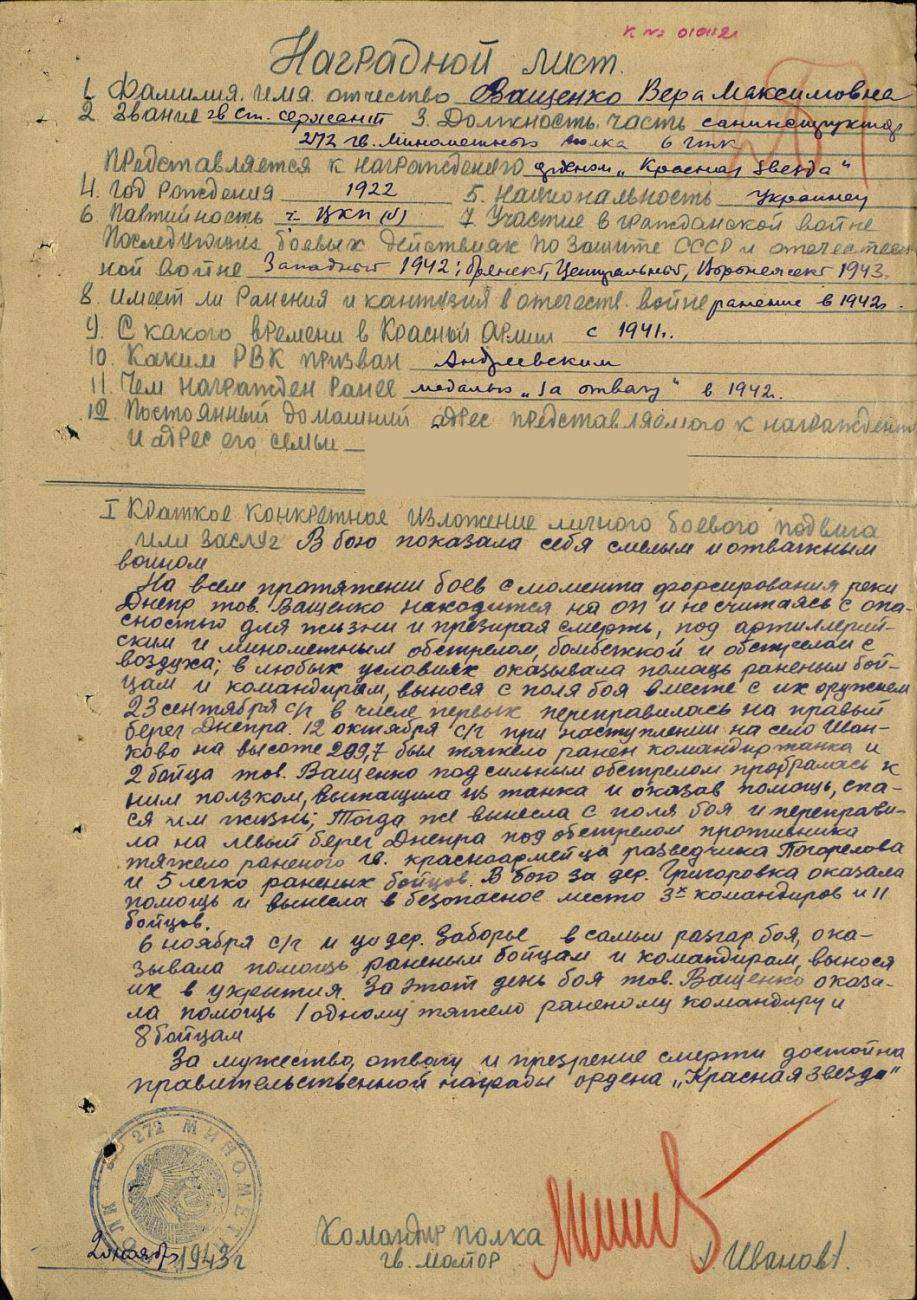 К № 0101121
Наградной лист.
1. Фамилия. имя. отчество Ващенко Вера Максимовна
2 Звание гв ст. сержант 3. Должность. часть санинструктор
272 гв. Минометный полка 6 гтк
Представляется к награждению орденом „Красная Звезда"
4. Год рождения 1922 5. Национальность украинец
6 Партийность ч. ВКП(б) 7. Участие в гражданской войне
последующих боевых действиях по защите СССР и отечествен
ной войне Западный 1942; Брянск, Центральный, Воронежск 1943.
8. Имеет ли ранения и кантузия в отечеств. войне ранение в 1942г.
9. С какого времени в Красной Армии с 1941г.
10. Каким РВК призван Андреевским
11. Чем награжден ранее медалью „За отвагу" в 1942г.
12 Постоянный домашний адрес представляемого к награждению
и адрес его семьи
I Краткое конкретное изложение личного боевого подвига
или заслуг В бою показала себя смелым и отважным
воином
На всем протяжении боев с момента форсирования реки
Днепр тов. Ващенко находится на ОП и не считаясь с опа-
сностью для жизни и презирая смерть, под артиллерий-
ским и минометным обстрелом, бомбежкой и обстрелом с
воздуха; в любых условиях оказывала помощь раненым бой-
цам и командирам, вынося с поля боя вместе с их оружием
23 сентября с/г в числе первых переправилась на правый
берег Днепра. 12 октября с/г при наступлении на село Шан-
ково на высоте 209,7 был тяжело ранен командир танка и
2 бойца тов. Ващенко под сильным обстрелом пробралась к
ним ползком, вытащила из танка и оказав помощь, спа-
ся им жизнь; Тогда же вынесла с поля боя и переправи-
ла на левый берег Днепра под обстрелом противника
тяжело раненого гв. красноармейца разведчика Погорелова
и 5 легко раненых бойцов. В бою за дер. Григоровка оказала
помощь и вынесла в безопасное место 3х командиров и 11
бойцов.
6 ноября с/г у дер. Заборье в самый разгар боя, ока-
зывала помощь раненым бойцам и командирам, вынося
их в укрытия. За этот день боя тов. Ващенко оказа-
ла помощь 1 одному тяжело раненому командиру и
8 бойцам
За мужество, отвагу и презрение смерти достойна
правительственной награды ордена „Красная звезда"
272 МИНОМЕТ
Командир полка
гв. майор /. Иванов/.
ноябр 1943 г